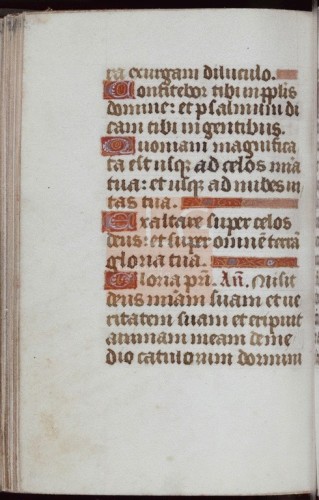 ra exurgam diluculo.
Confitebor tibi in pplis
domine: et psalmum di
cam tibi in gentibus.
Quoniam magnifica
ta est usq; ad celos mīa
tua: et usq; ad nubes ueri
tas tua.
Exaltare super celos
deus: et super omnē terrā
gloria tua.
Gloria pri. Añ. Misit
deus mīam suam et ue
ritatem suam et eripuit
animam meam de me
dio catulorum dormiun